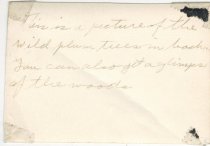 This is a picture of the
wild plum trees in back.
You can also get a glimpse
of the woods